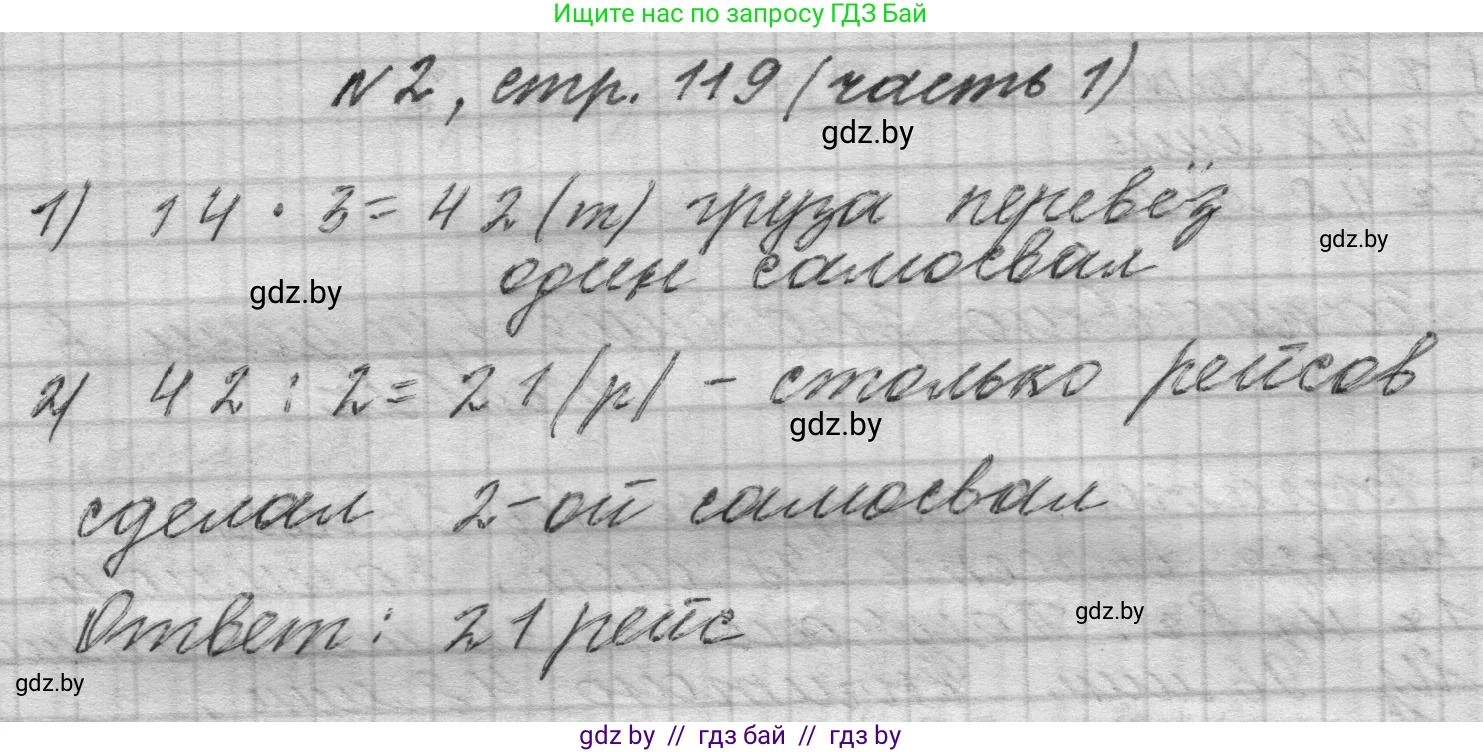 Ищите нас по запросу ГДЗ Бай
N2, стр. 119 (часть 1)
gdz.by
1) 14 · 3 = 42 (т) груза перевёз
gdz.by
один самосвал
gdz.by
2) 42 : 2 = 21 (р) - столько рейсов
gdz.by
сделал 2-ой самосвал
Ответ: 21 рейс
gdz.by
gdz.by
gdz by // гдз бай // гдз by